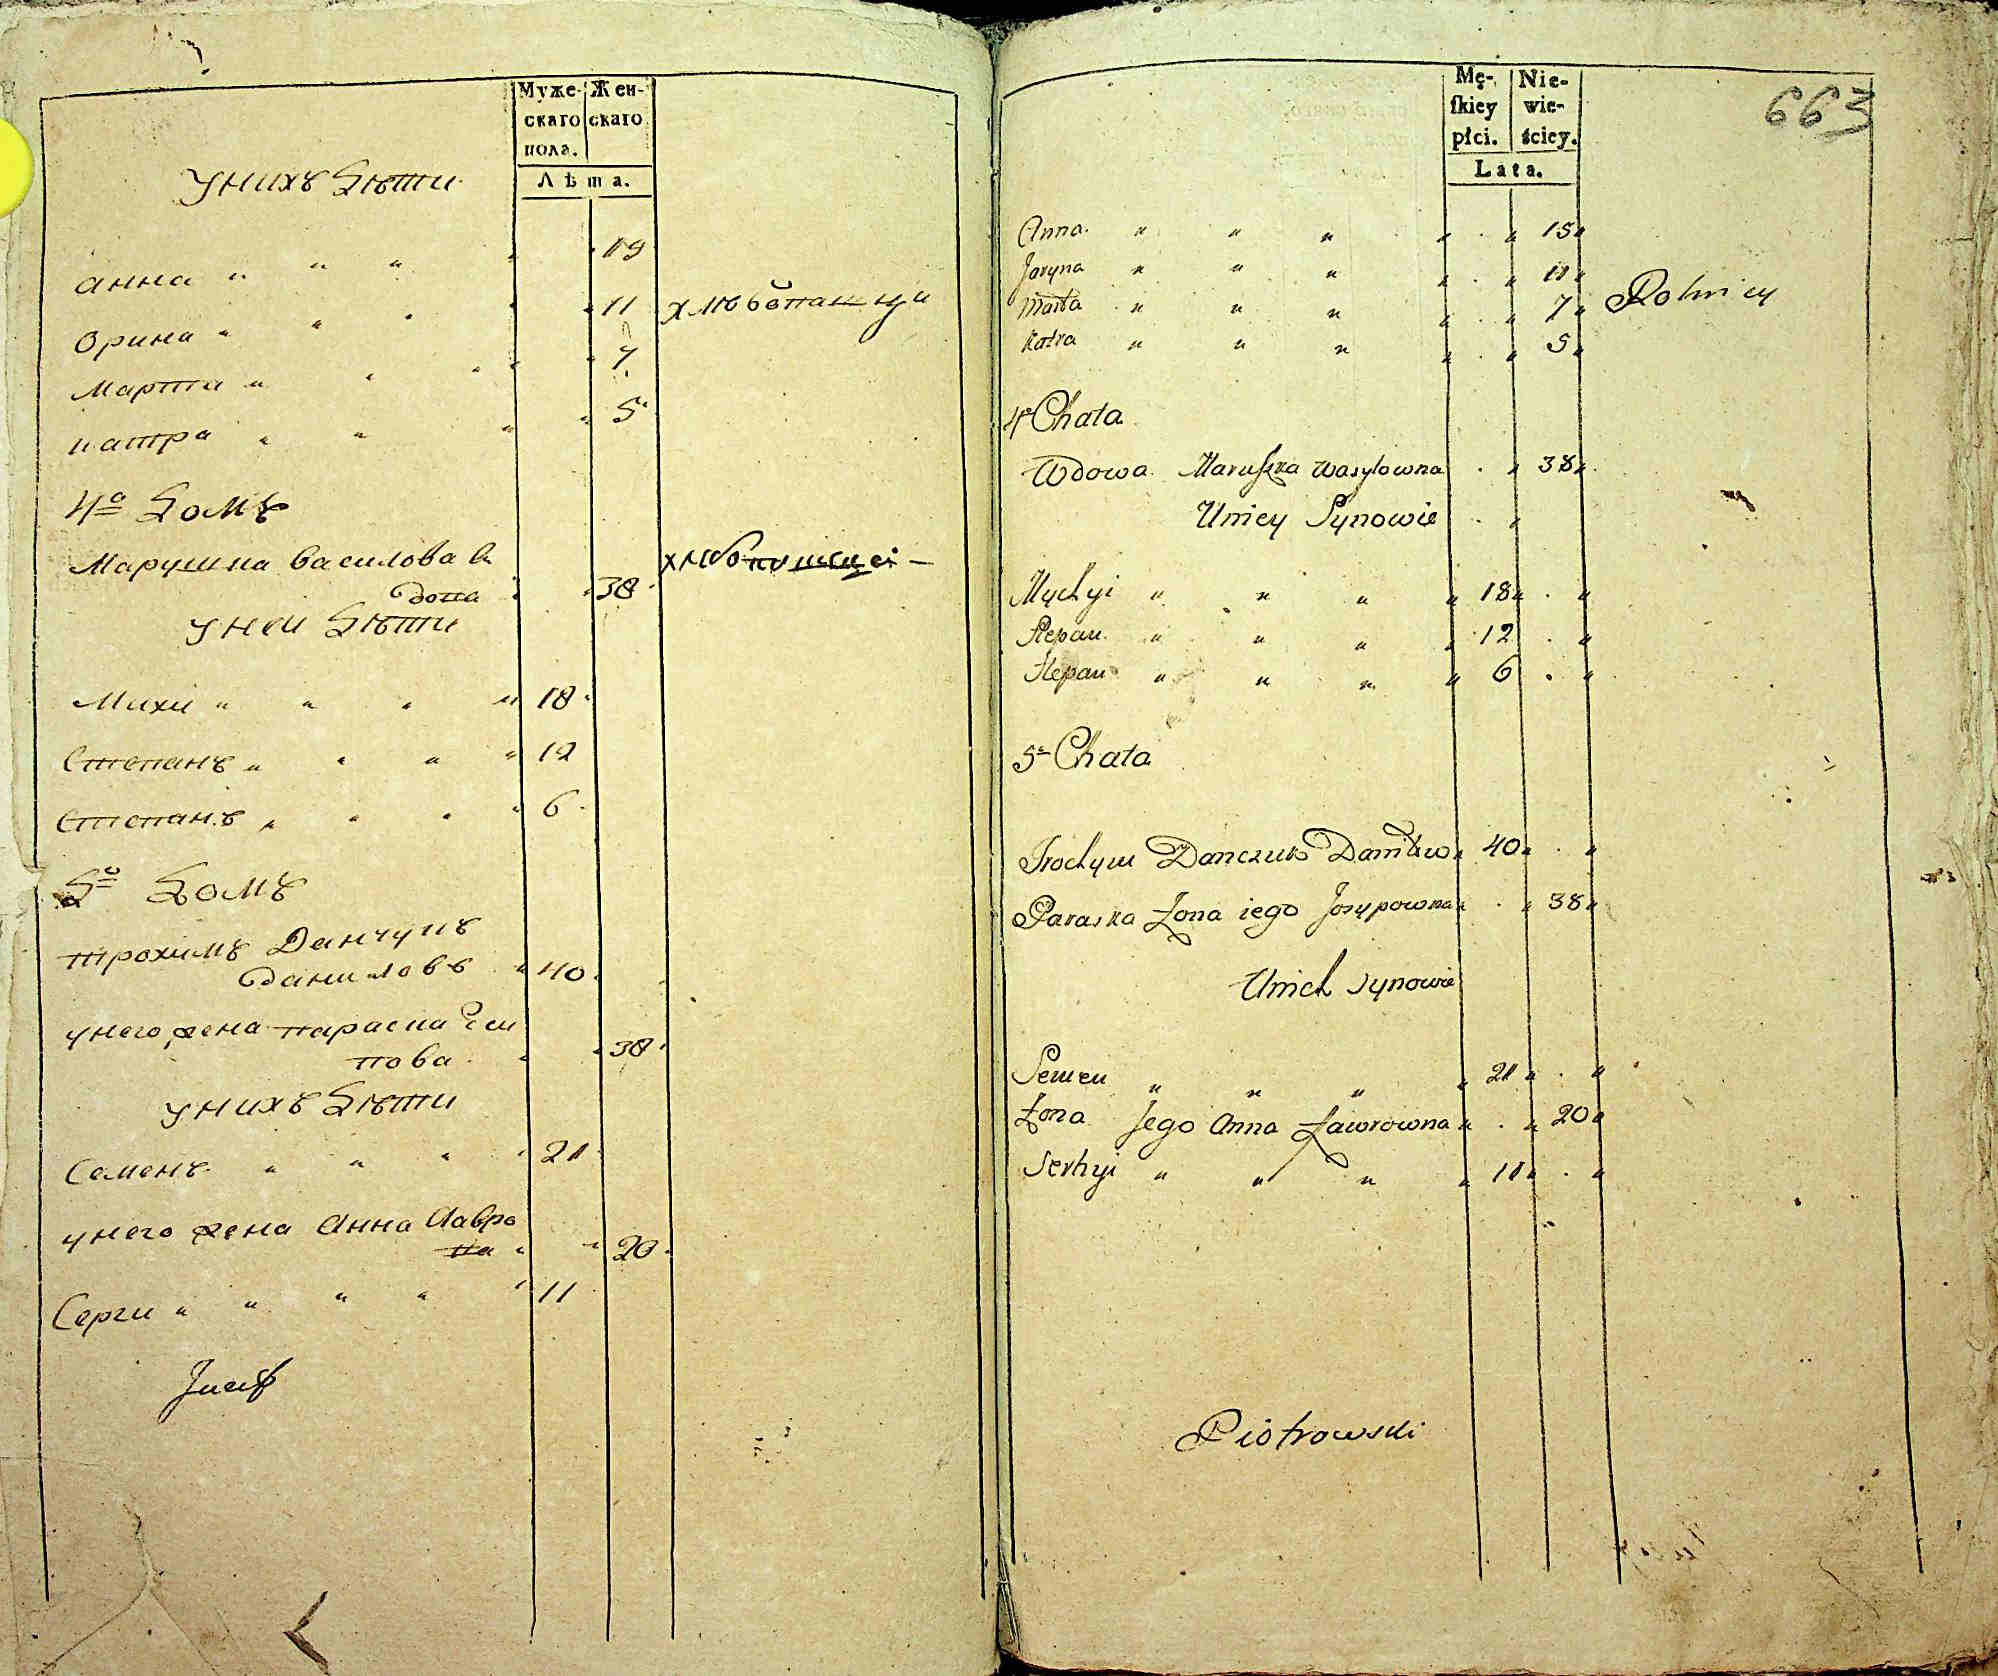 Муже- Жен-
скаго скаго
пола.
Лѣта.
унихъ Дѣти
анна " " " " 19
Орина " " " " 11 хлѣбопашцы
Марта " " " " 7
катра " " " " 5
4º Домъ
Марушка василова в
дова 38
уней Дѣти
Михи " " " " 18
Степанъ " " " " 12
Степанъ " " " " 6
5º Домъ
трохимъ Данчукъ
даниловъ " 40
унего жена параска Оси
пова 38
унихъ Дѣти
Семенъ " " " " 21
унего жена Анна Лавро
ва " 20
Серги " " " " 11
Jozef
663
Mę- Nie-
skiey wie-
płci. ściey.
Lata.
Anna " " " " " 15
Joryna " " " " " 11
Marta " " " " " 7 Rolnicy
Katra " " " " " 5
4º Chata
Wdowa Maruszka Wasylowna " 38
Uniey Synowie
Mychyi " " " " 18
Stepan " " " " 12
Stepan " " " " 6
5º Chata
Trochym Danczuk Daniłow 40
Paraska Żona iego Josypowna 38
Unich Synowie
Semen " " " " 21
Żona Jego Anna Ławrowna 20
Serhyi " " " " 11
Piotrowski